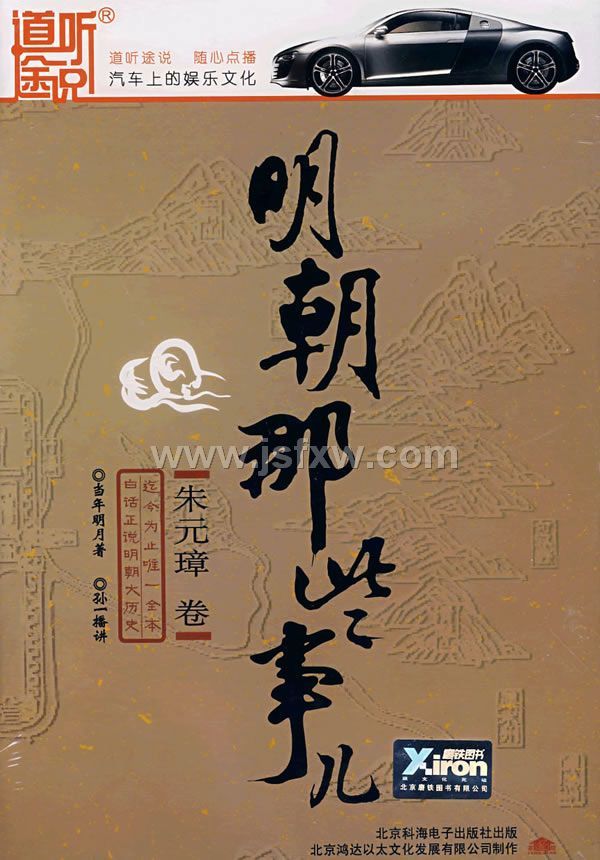 道听途说®
道听途说 随心点播
汽车上的娱乐文化
明朝那些事儿
朱元璋 卷
迄今为止唯一全本
白话正说明朝大历史
◎当年明月著
◎孙一播讲
www.jsfxw.com
磨铁图书
X-iron
北京磨铁图书有限公司
北京科海电子出版社出版
北京鸿达以太文化发展有限公司制作